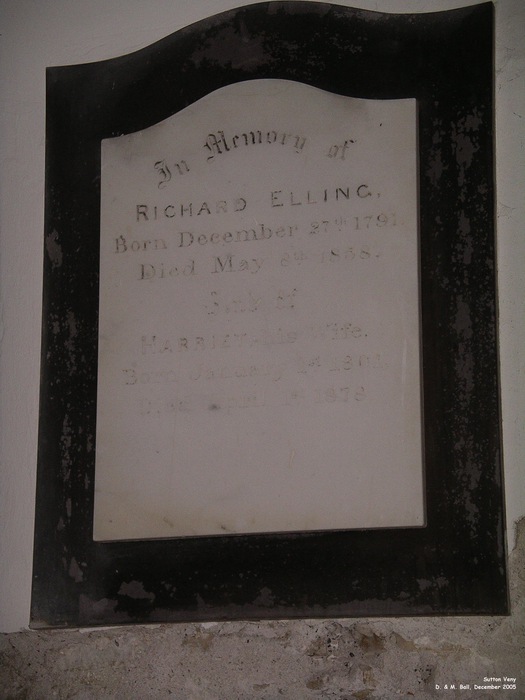 In Memory of
RICHARD ELLING,
Born December 27th 1791.
Died May 8th 1858.
of
HARRIET, his Wife.
Born January
April 1878
Sutton Veny
D. & M. Ball, December 2005